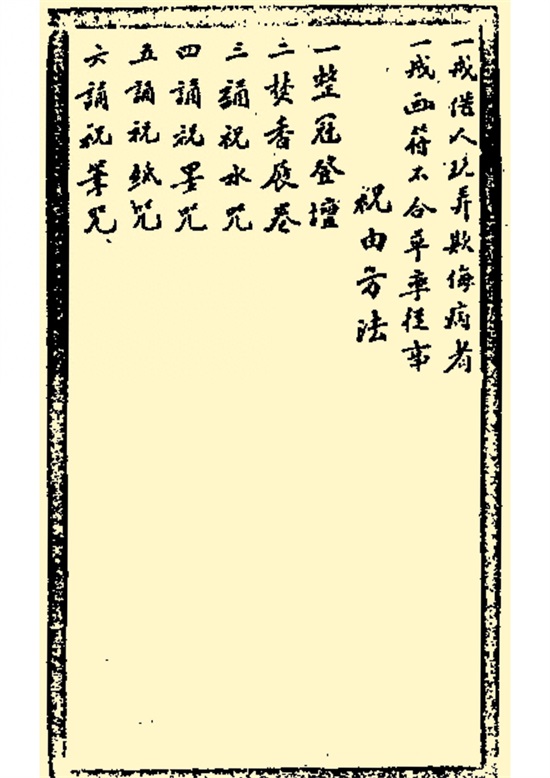 一戒借人玩弄欺侮病者
一戒画符不合草率从事
祝由方法
一整冠登壇
二焚香展卷
三誦祝水咒
四誦祝墨咒
五誦祝紙咒
六誦祝筆咒